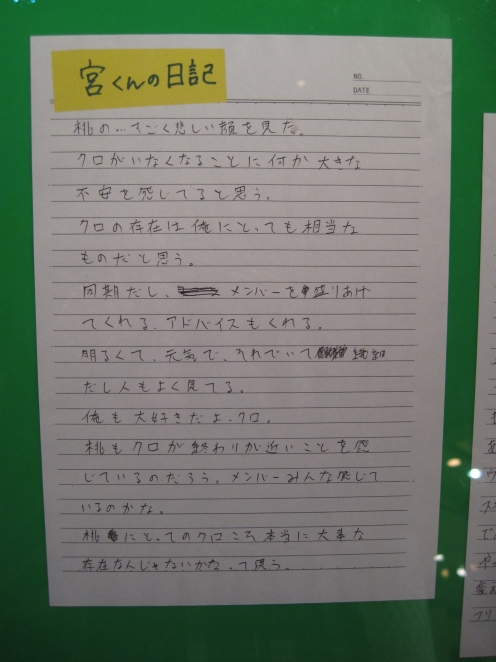 宮くんの日記
NO.
DATE
桃の…すごく悲しい顔を見た。
クロがいなくなることに何か大きな
不安を感じてると思う。
クロの存在は俺にとっても相当な
ものだと思う。
同期だし、メンバーを盛りあげ
てくれる、アドバイスもくれる。
明るくて、元気で、それでいて繊細
だし人もよく見てる。
俺も大好きだよ、クロ。
桃もクロが終わりが近いことを感
じているのだろう。メンバーみんな感じて
いるのかな。
桃にとってのクロこそ本当に大事な
存在なんじゃないかな、って思う。